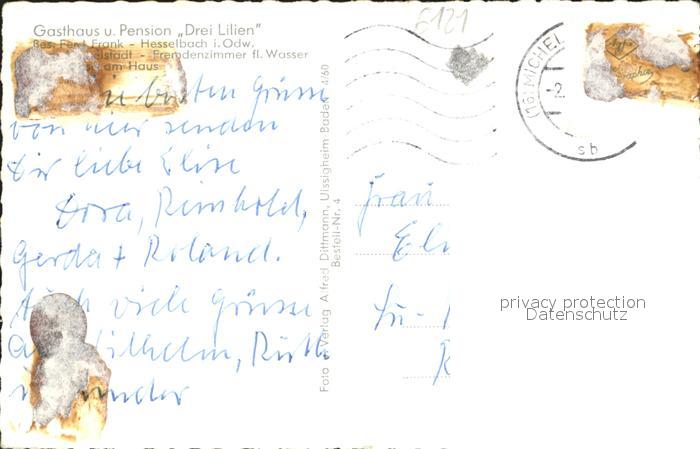 Gasthaus u. Pension „Drei Lilien"
Bes. Ferd. Frank - Hesselbach i. Odw.
Fremdenzimmer fl. Wasser
am Haus
6121
(16) MICHEL
-2.
sb
besten Grüsse
von hier senden
Dir liebe Elise
Dora, Reinhold,
Gerda + Roland.
Auch viele Grüsse
Wilhelm, Ruth
Foto Verlag Alfred Dittmann, Uissigheim Baden 4/60
Bestell-Nr. 4
Frau
privacy protection
Datenschutz